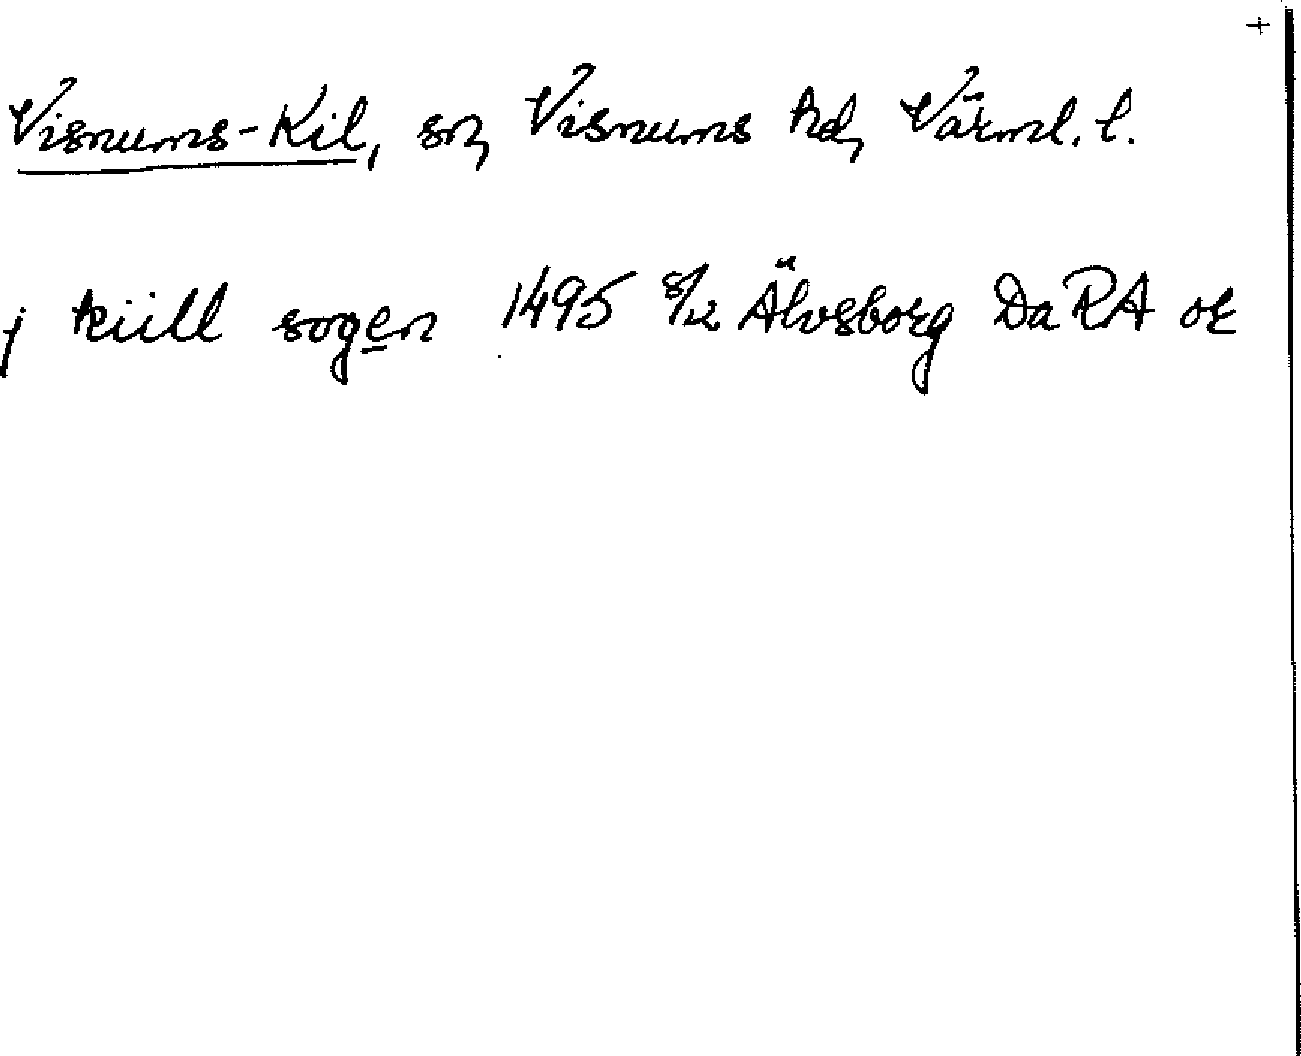 +
Visnums-Kil, sn, Visnums hd, Värml. l.
j kiill sogen 1495 8/12 Älvsborg Da RA or